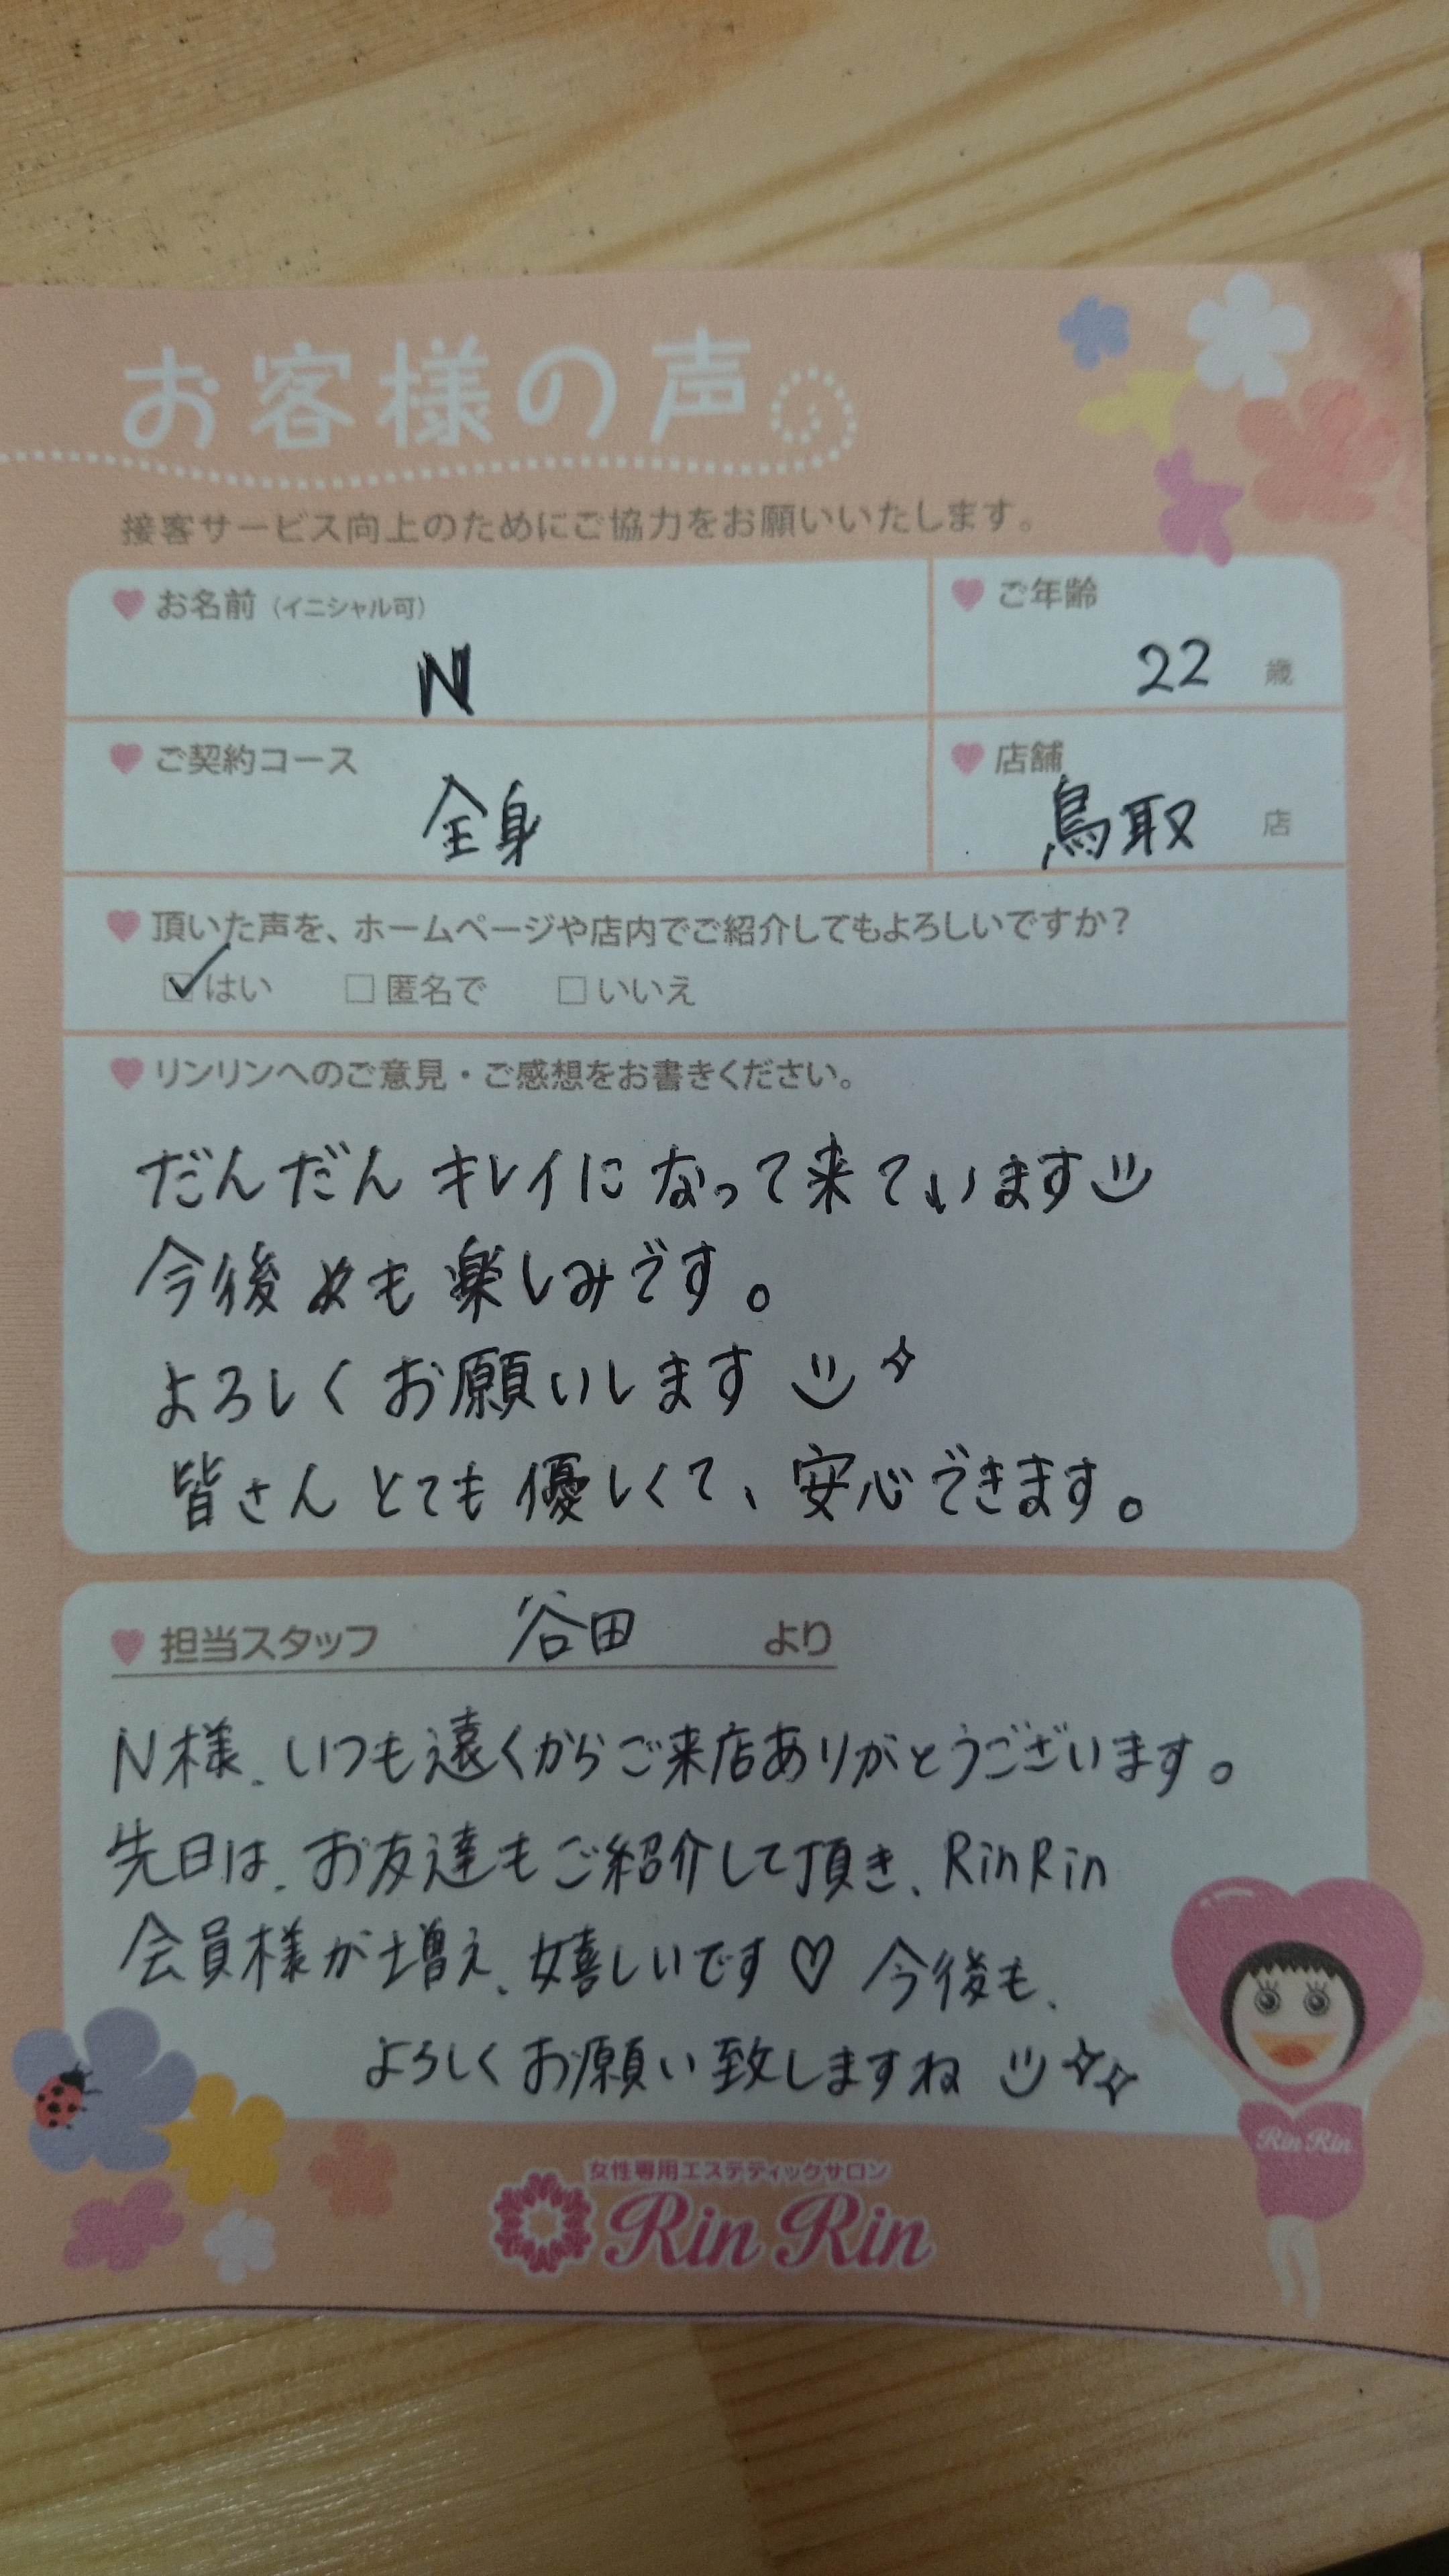 お客様の声
接客サービス向上のためにご協力をお願いいたします。
お名前（イニシャル可）
N
ご年齢
22 歳
ご契約コース
全身
店舗
鳥取 店
頂いた声を、ホームページや店内でご紹介してもよろしいですか？
☑はい □匿名で □いいえ
リンリンへのご意見・ご感想をお書きください。
だんだん キレイに なって来ています
今後めも楽しみです。
よろしくお願いします
皆さん とても 優しくて、安心できます。
担当スタッフ 谷田 より
N様、いつも遠くからご来店ありがとうございます。
先日は、お友達もご紹介して頂き、RinRin
会員様が増え、嬉しいです♡ 今後も、
よろしくお願い致しますね
Rin Rin
女性専用エステティックサロン
Rin Rin